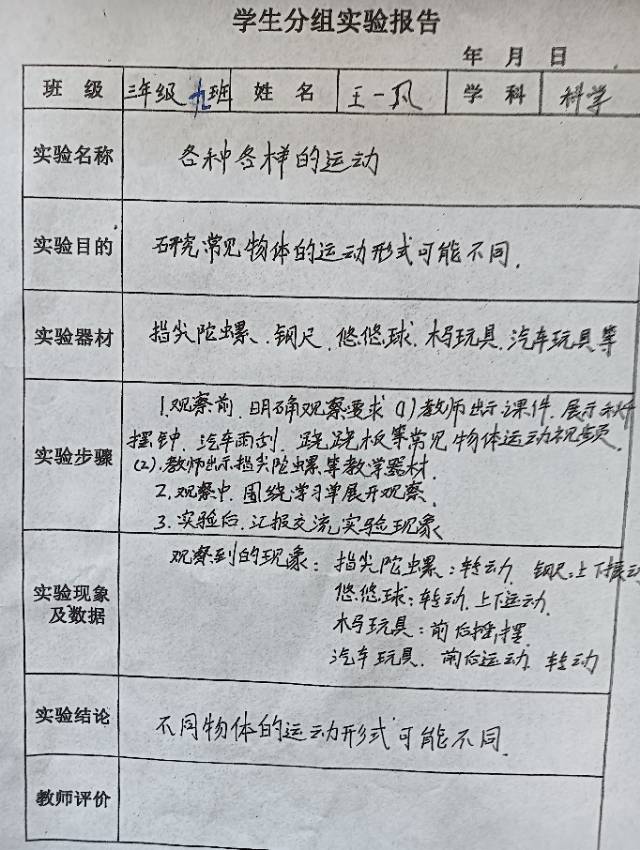 学生分组实验报告
年 月 日
班 级 三年级 九班 姓 名 王一凡 学 科 科学
实验名称 各种各样的运动
实验目的 研究常见物体的运动形式可能不同.
实验器材 指尖陀螺、钢尺、悠悠球、木马玩具、汽车玩具等
实验步骤
1.观察前,明确观察要求 (1)教师出示课件,展示秋千
摆钟、汽车雨刮、跷跷板等常见物体运动视频.
(2).教师出示指尖陀螺等教学器材.
2.观察中,围绕学习单展开观察.
3.实验后,汇报交流实验现象
实验现象
及数据
观察到的现象:指尖陀螺:转动 钢尺:上下振动
悠悠球:转动.上下运动.
木马玩具:前后摇摆.
汽车玩具.前后运动.转动
实验结论 不同物体的运动形式可能不同.
教师评价